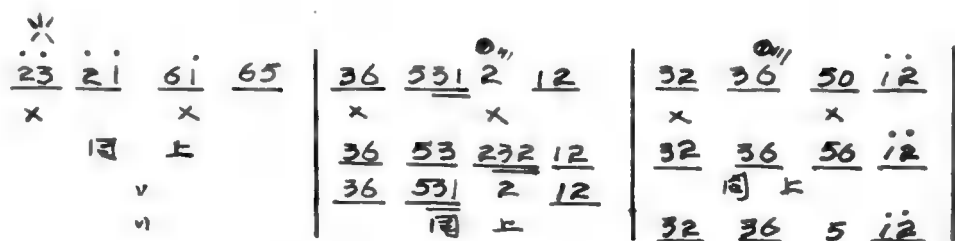 2̇3̇ 2̇1̇ 61̇ 65 | 36 531 2 12 | 32 36 50 1̇2̇
x x x x x x
同 上 36 53 232 12 32 36 56 1̇2̇
36 531 2 12 同 上
同 上 32 36 5 1̇2̇